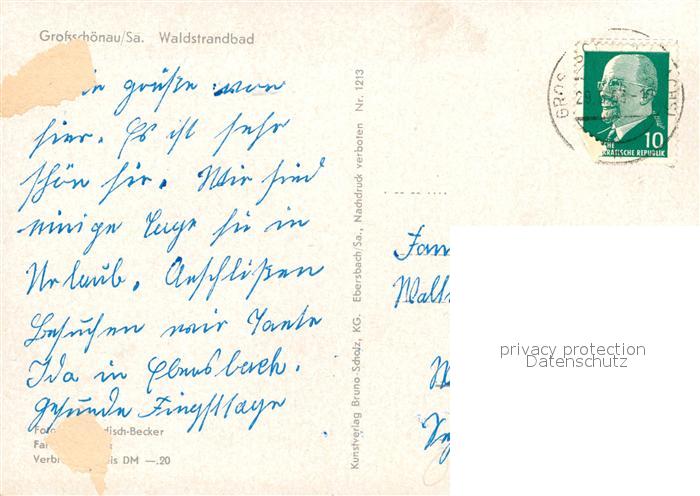 Großschönau/Sa. Waldstrandbad
grüße von
hier. Es ist sehr
schön hir. Wir sind
einige Tage hir in
Urlaub. Anschlißen
Besuchen wir Tante
Ida in Ebersbach.
Gesunde Fingsttage
Verb DM —.20
Kunstverlag Bruno Scholz, KG. Ebersbach/Sa., Nachdruck verboten Nr. 1213
GROS
10
KRATISCHE REPUBLIK
Fam
privacy protection
Datenschutz